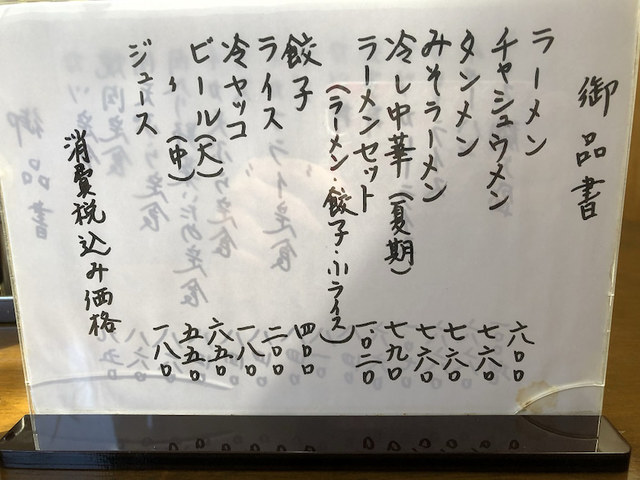 御品書
ラーメン 六〇〇
チャシュウメン 七六〇
タンメン 七六〇
みそラーメン 七六〇
冷し中華(夏期) 七九〇
ラーメンセット 一、〇二〇
(ラーメン・餃子・小ライス)
餃子 四〇〇
ライス 二〇〇
冷ヤッコ 一八〇
ビール(大) 六五〇
〃(中) 五五〇
ジュース 一八〇
消費税込み価格